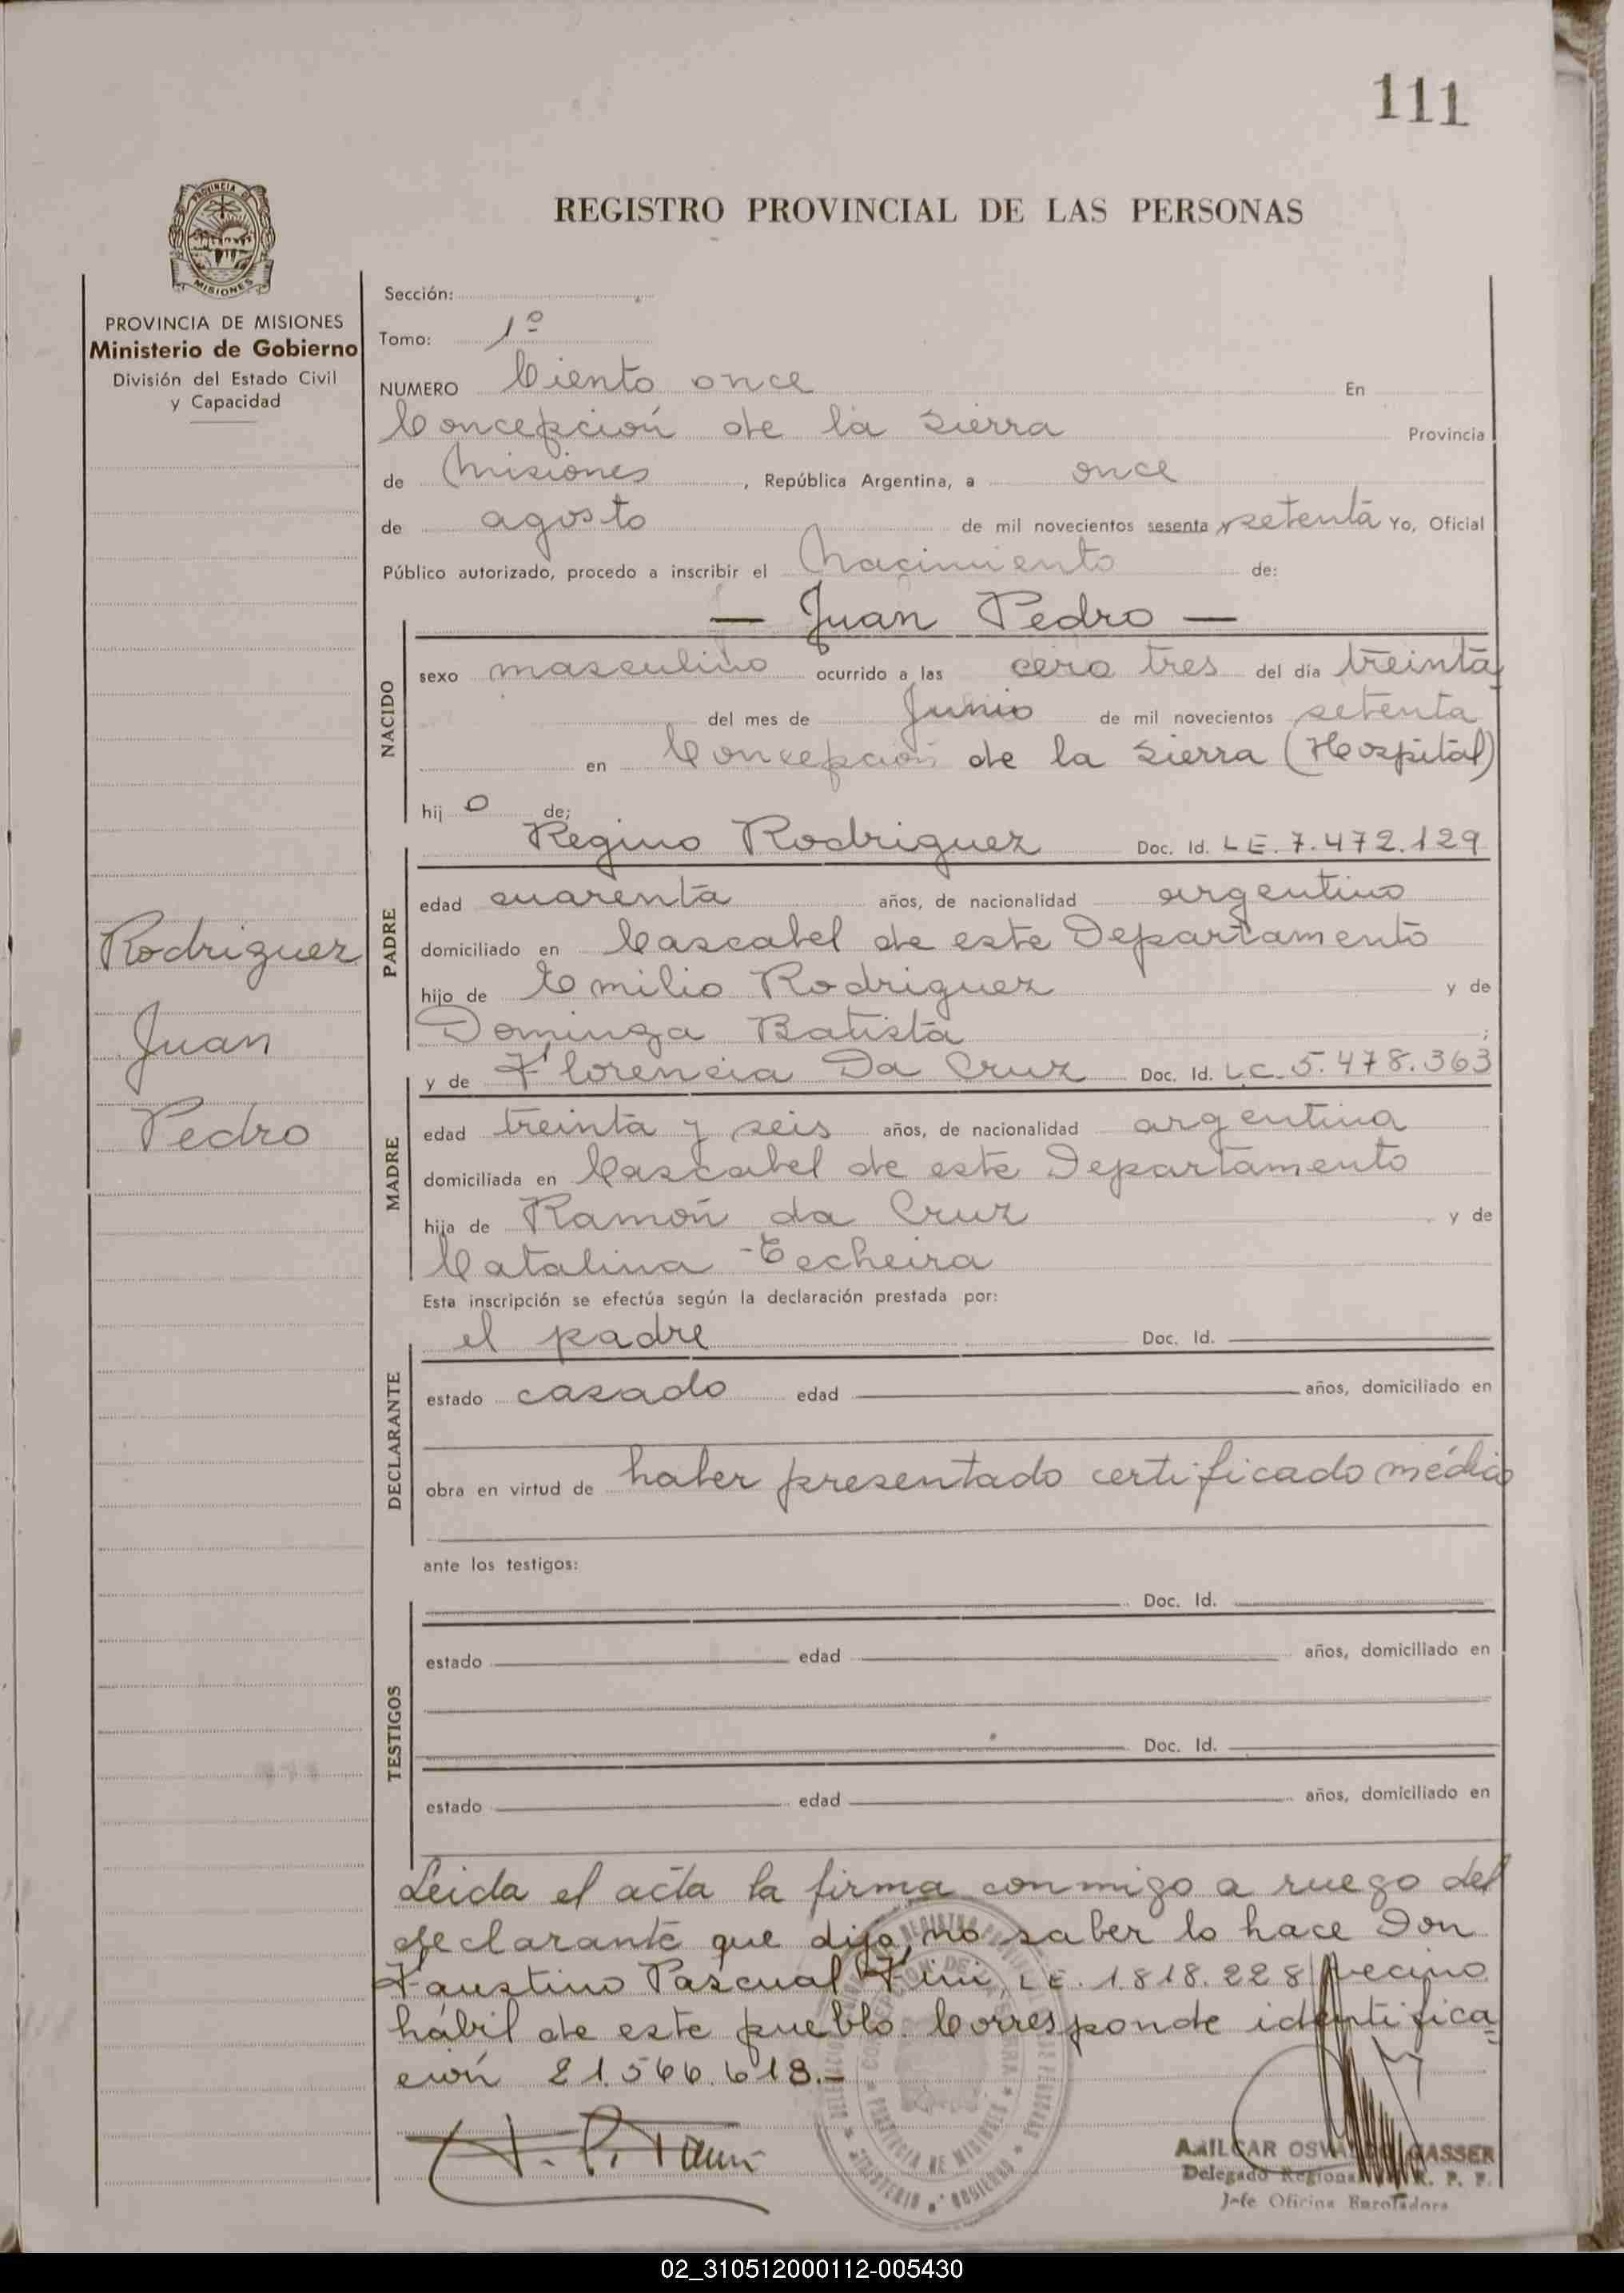 111
REGISTRO PROVINCIAL DE LAS PERSONAS
PROVINCIA DE
MISIONES
PROVINCIA DE MISIONES
Ministerio de Gobierno
División del Estado Civil
y Capacidad
Rodriguez
Juan
Pedro
Sección:
Tomo: 1º
NUMERO Ciento once En
Concepción de la Sierra Provincia
de Misiones, República Argentina, a once
de agosto de mil novecientos sesenta y setenta Yo, Oficial
Público autorizado, procedo a inscribir el Nacimiento de:
— Juan Pedro —
NACIDO
sexo masculino ocurrido a las cero tres del dia treinta
del mes de Junio de mil novecientos setenta
en Concepción de la Sierra (Hospital)
hij o de;
PADRE
Regino Rodriguez Doc. Id. L E. 7.472.129
edad cuarenta años, de nacionalidad argentino
domiciliado en Cascabel de este Departamento
hijo de Emilio Rodriguez y de
Dominga Batista ;
MADRE
y de Florencia Da Cruz Doc. Id. L.C. 5.478.363
edad treinta y seis años, de nacionalidad argentina
domiciliada en Cascabel de este Departamento
hija de Ramón da Cruz y de
Catalina Techeira
Esta inscripción se efectúa según la declaración prestada por:
DECLARANTE
el padre Doc. Id.
estado casado edad años, domiciliado en
obra en virtud de haber presentado certificado médico
ante los testigos:
TESTIGOS
Doc. Id.
estado edad años, domiciliado en
Doc. Id.
estado edad años, domiciliado en
Leida el acta la firma conmigo a ruego del
declarante que dijo no saber lo hace Don
Faustino Pascual L E. 1.818.228 vecino
hábil de este pueblo. Corresponde identifica=
ción 21.566.618.-
PROVINCIA DE MISIONES
GASSER
Delegado Regional R. P. P.
Jefe Oficina Enroladora
02_310512000112-005430